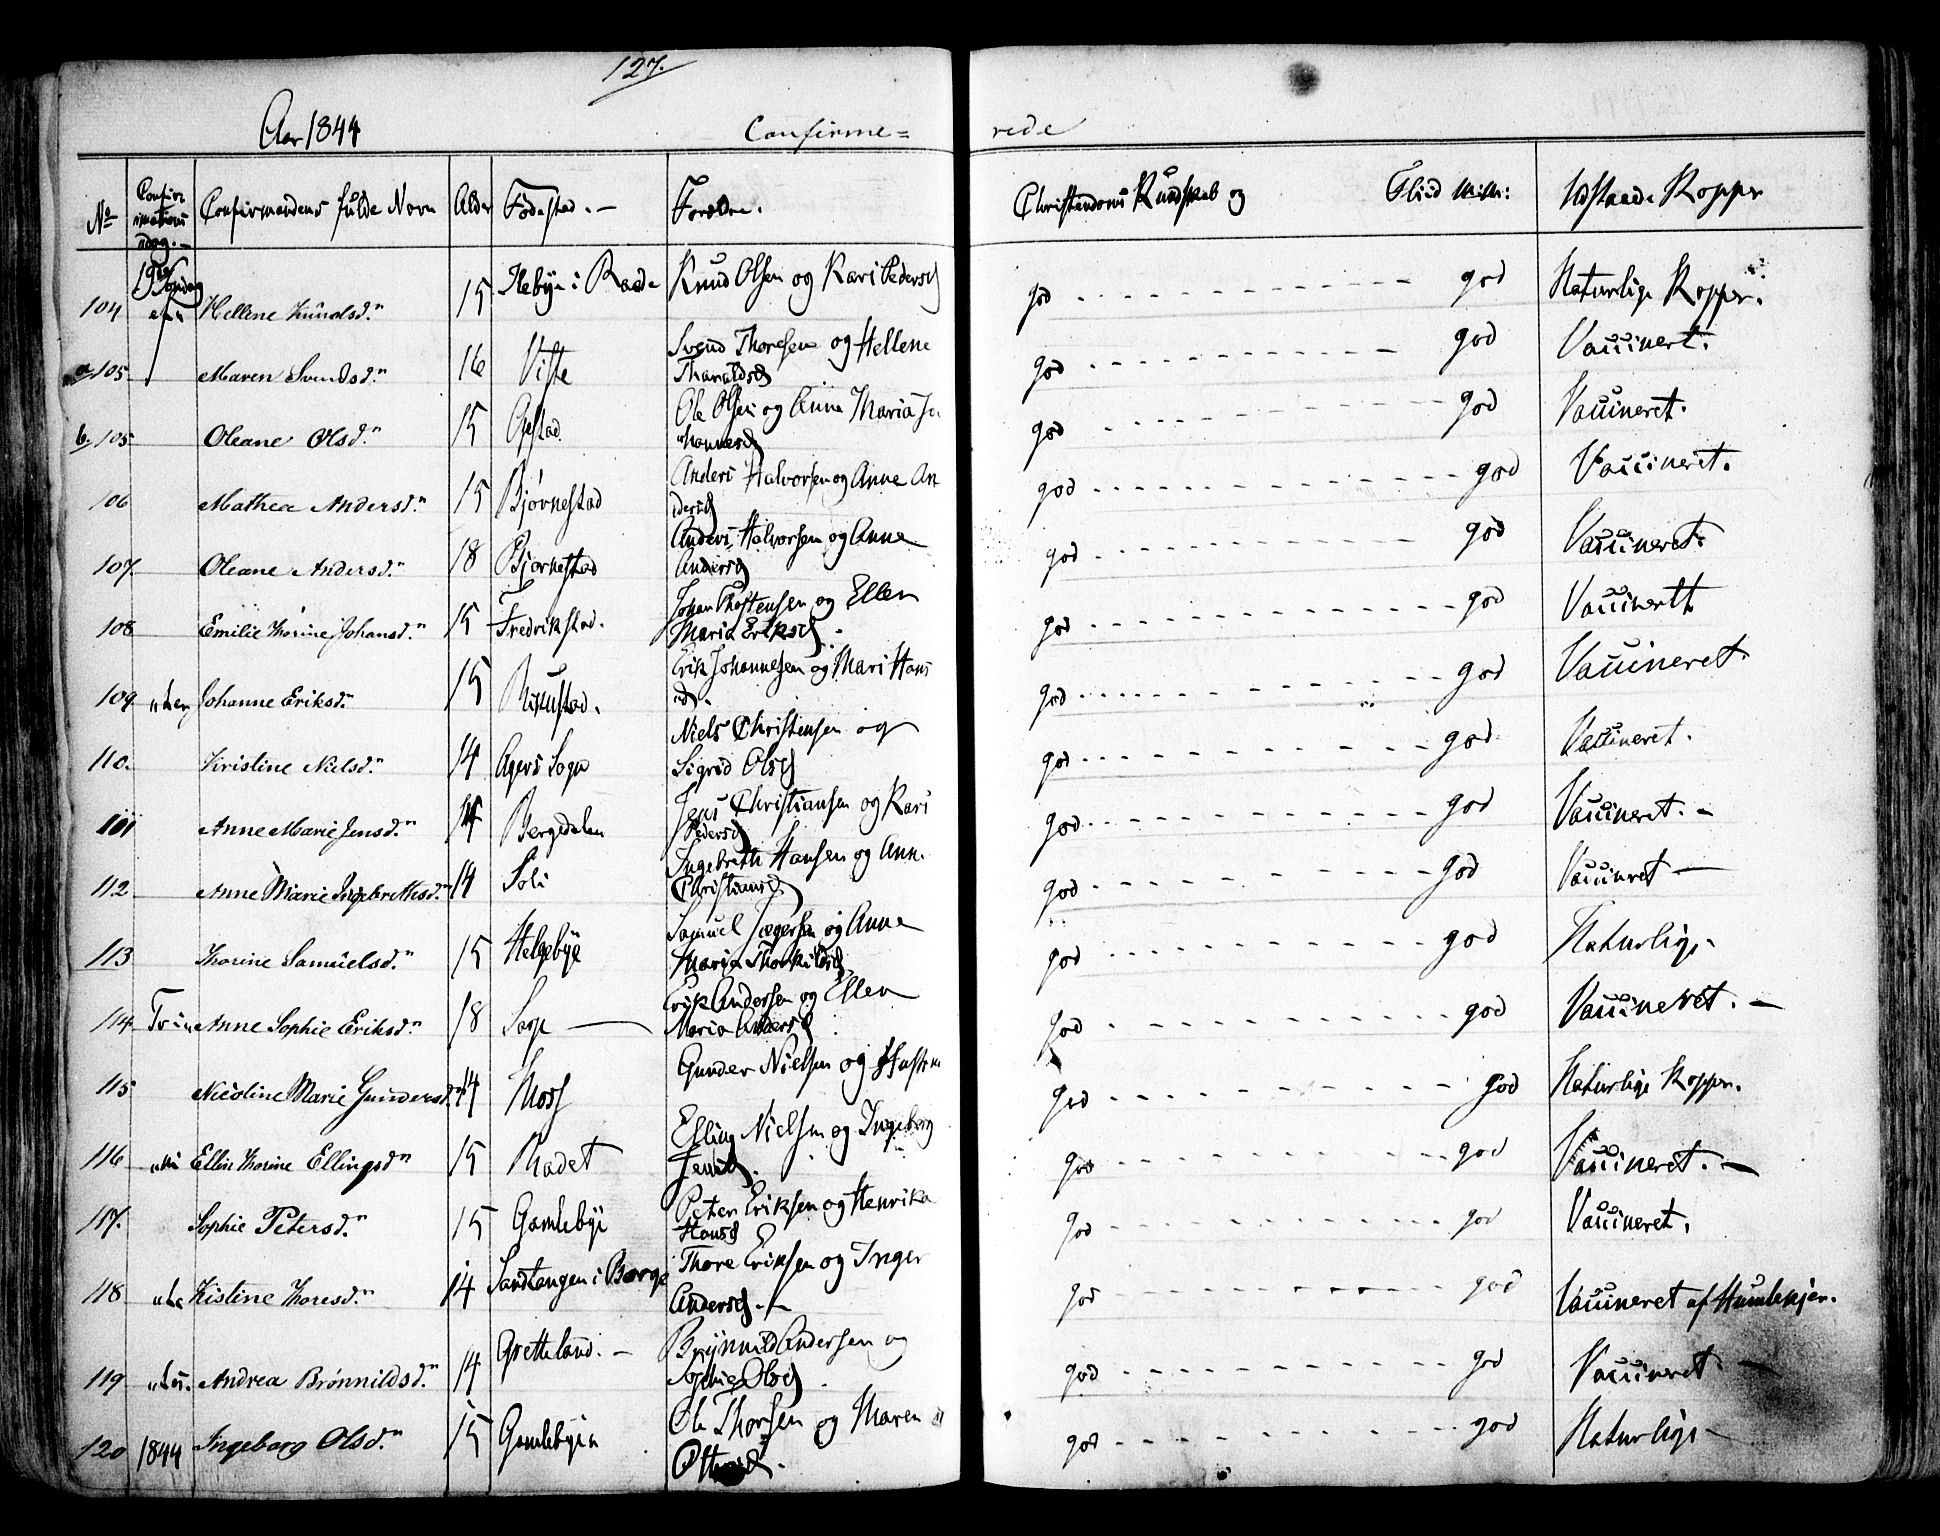 127.
Aar 1844 Confirme= rede
No Confirmationsdag.- Confirmandens fulde Navn Alder Fødested.- Forældre. Christendoms Kundskab og Fliid Udstaaede Kopper
104 Hellene Knudsd.n 15 Ilebye i Raade Knud Olsen og Kari Pedersd god god Naturlige Kopper.
a 105. Maren Svendsd.n 16 Viste Svend Thoresen og Hellene
Tharaldsd god god Vaccinert.
b. 105 Oleane Olsd.n 15 Opstad Ole Olsen og Anne Maria Jo
hannesd god god Vaccineret.
106 Mathea Andersd.n 15 Bjørnestad Anders Halvorsen og Anne An
dersd god god Vaccineret.
107. Oleane Andersd.n 18 Bjørnestad Anders Halvorsen og Anne
Andersd god god Vaccineret.
108 Emilie Thorine Johansd.n 15 Fredrikstad. Johan Thostensen og Ellen
Maria Eriksd. god god Vaccinertt
109 Johanne Eriksd.n 15 Erik Johannesen og Mari Hans
sd. god god Vaccineret.
110. Kristine Nielsd.n 14 Agers Sogn Niels Christensen og
Sigrid Olsd god god Vaccineret.
111 Anne Marie Jensd.n 14 Bergedalen Jens Christiansen og Kari
Pedersd god god Vaccineret.-
112 Anne Marie Ingebrethsd.n 14 Soli Ingebreth Hansen og Ann.
Christiansd god god Vaccineret -
113 Thorine Samuelsd.n 15 Helgebye Samuel Jægersen og Anne
Maria Thorkildsd god god Naturlige-
114 Trin Anne Sophie Eriksd.n 18 Sorp - Erik Andersen og Ellen
Maria Andersd god god Vaccineret. -
115 Nicoline Marie Gundersd.n 14 Moss Gunder Nielsen og god god Naturlige Kopper.
116 Ellin Thorine Ellingsd.n 15 Raadet Elling Nielsen og Ingeborg
Jensd. god god Vaccineret. -
117. Sophie Petersd.n 15 Gamlebye Peter Eriksen og Henrika
Hansd god god Vaccineret.
118 Kistine Thoresd.n 14 Sandtangen i Borge Thore Eriksen og Inger
Andersd.- god god Vaccineret af Humlekjær.
119 Andrea Brønnildsd.n 14 Gretteland. - Brynnild Andersen og
Sophie Olsd god god Vaccineret. -
120 1844 Ingeborg Olsd.n 15 Gamlebyen Ole Thorsen og Maren
god god Naturlige -